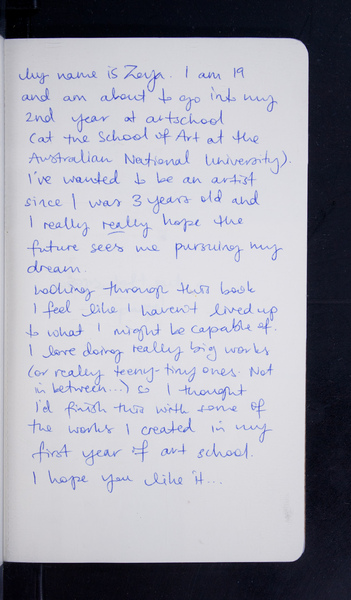 My name is Zoya. I am 19
and am about to go into my
2nd year at artschool
(at the School of Art at the
Australian National University).
I've wanted to be an artist
since I was 3 years old and
I really really hope the
future sees me pursuing my
dream.
Looking through this book
I feel like I haven't lived up
to what I might be capable of.
I love doing really big works
(or really teeny-tiny ones. Not
in between...) so I thought
I'd finish this with some of
the works I created in my
first year of art school.
I hope you like it...